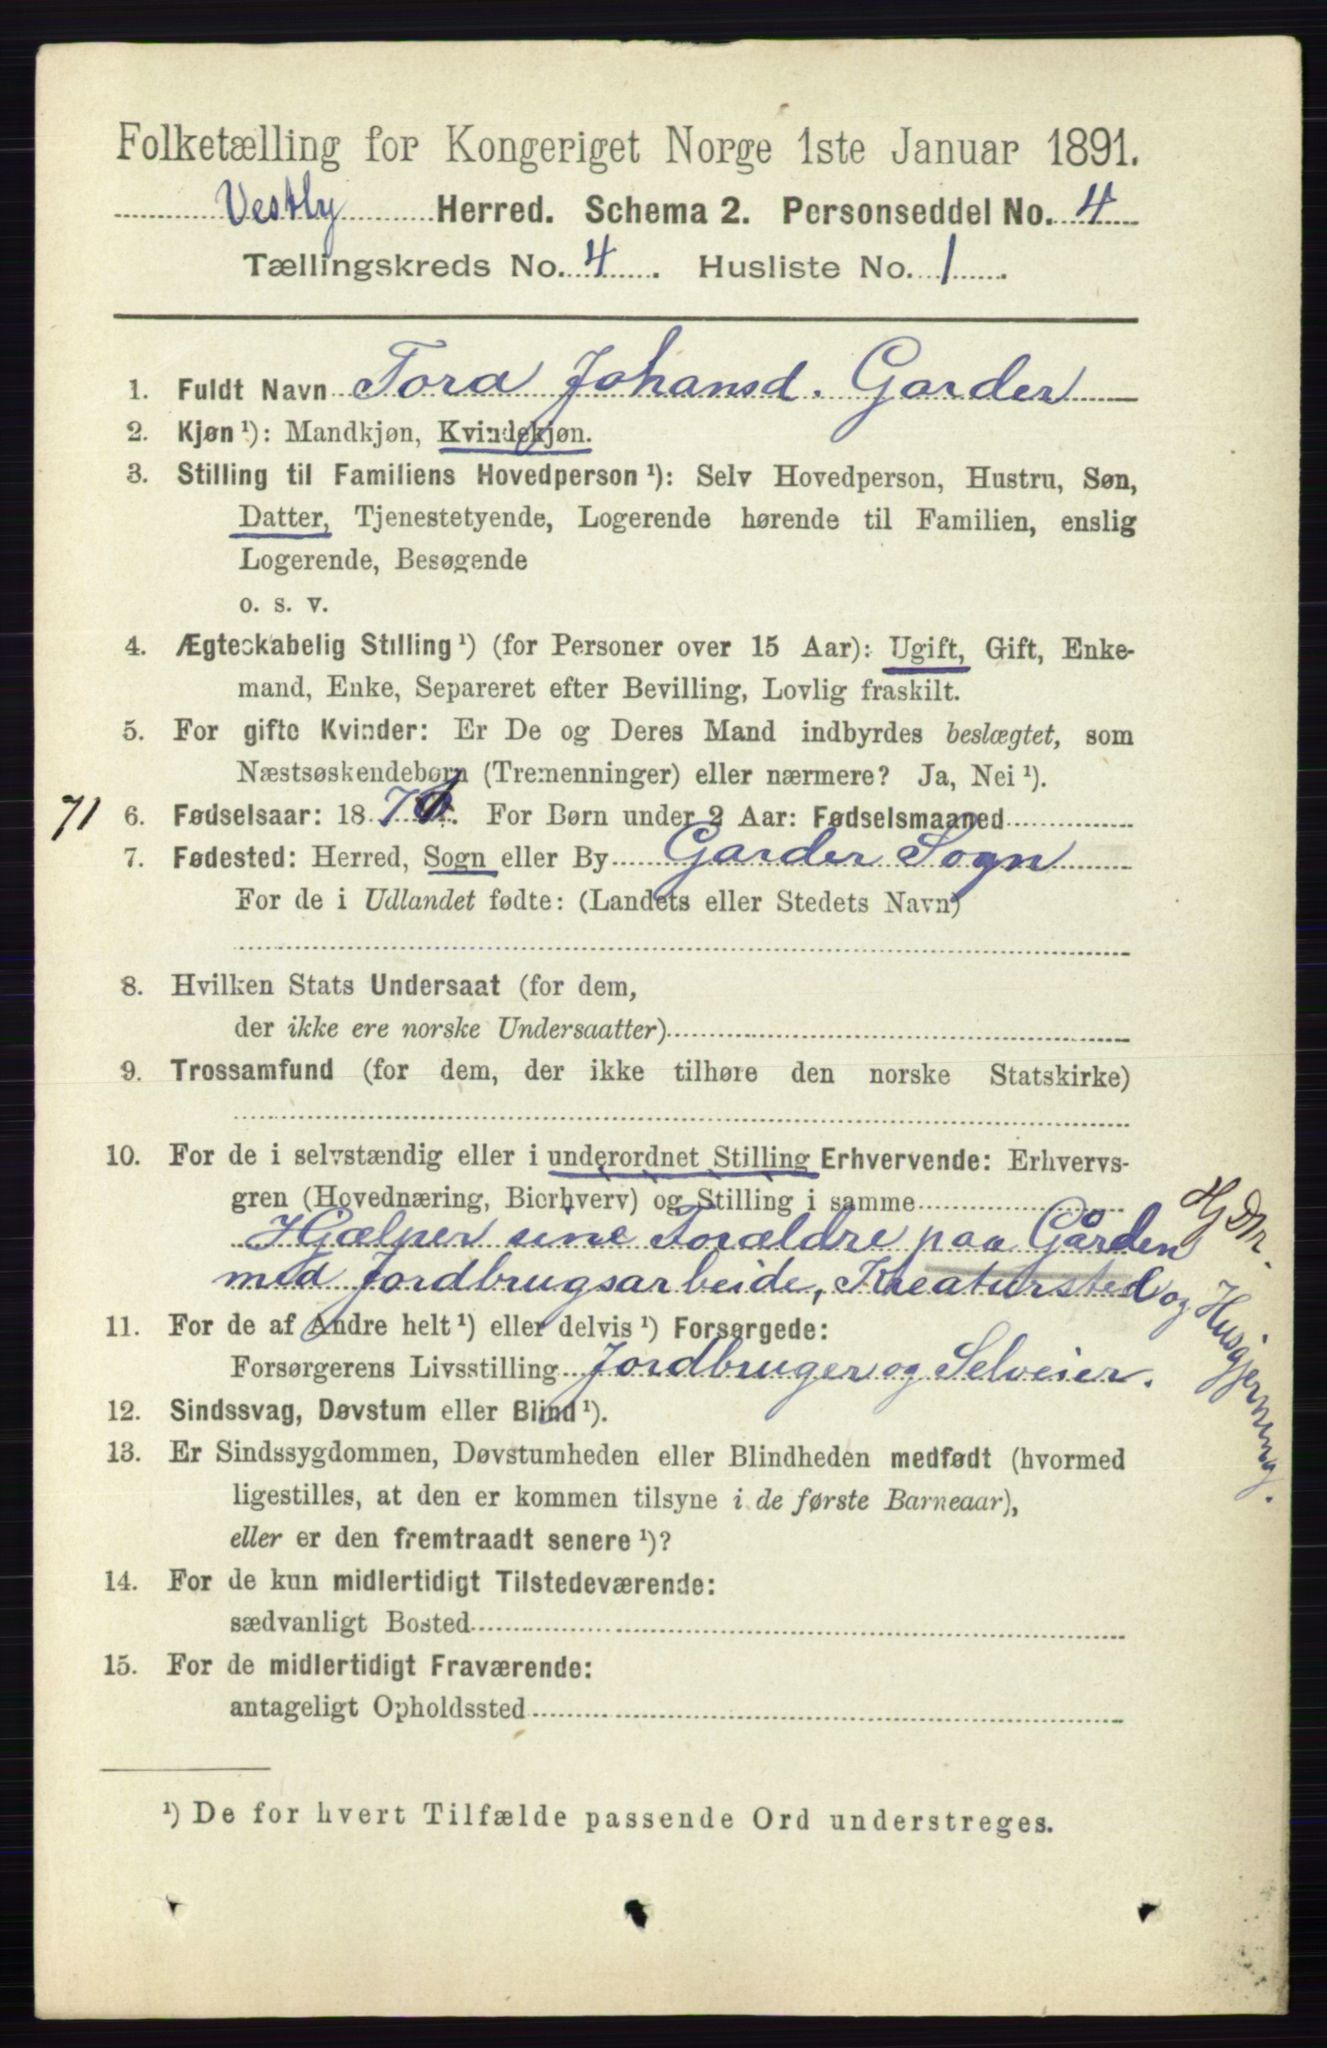 Folketælling for Kongeriget Norge 1ste Januar 1891.
Vestby Herred. Schema 2. Personseddel No. 4
Tællingskreds No. 4. Husliste No. 1.
1. Fuldt Navn Tora Johansd. Garder
2. Kjøn ¹): Mandkjøn, Kvindekjøn.
3. Stilling til Familiens Hovedperson ¹): Selv Hovedperson, Hustru, Søn,
Datter, Tjenestetyende, Logerende hørende til Familien, enslig
Logerende, Besøgende
o. s. v.
4. Ægteskabelig Stilling ¹) (for Personer over 15 Aar): Ugift, Gift, Enke-
mand, Enke, Separeret efter Bevilling, Lovlig fraskilt.
5. For gifte Kvinder: Er De og Deres Mand indbyrdes beslægtet, som
Næstsøskendebørn (Tremenninger) eller nærmere? Ja, Nei ¹).
71 6. Fødselsaar: 187 . For Børn under 2 Aar: Fødselsmaaned
7. Fødested: Herred, Sogn eller By Garder Sogn
For de i Udlandet fødte: (Landets eller Stedets Navn)
8. Hvilken Stats Undersaat (for dem,
der ikke ere norske Undersaatter)
9. Trossamfund (for dem, der ikke tilhøre den norske Statskirke)
10. For de i selvstændig eller i underordnet Stilling Erhvervende: Erhvervs-
gren (Hovednæring, Bierhverv) og Stilling i samme
Hjælper sine Forældre paa Gården
med Jordbrugsarbeide, Kreaturstel og Husgjerning.
11. For de af Andre helt ¹) eller delvis ¹) Forsørgede:
Forsørgerens Livsstilling Jordbruger og Selveier.
12. Sindssvag, Døvstum eller Blind ¹).
13. Er Sindssygdommen, Døvstumheden eller Blindheden medfødt (hvormed
ligestilles, at den er kommen tilsyne i de første Barneaar),
eller er den fremtraadt senere ¹)?
14. For de kun midlertidigt Tilstedeværende:
sædvanligt Bosted
15. For de midlertidigt Fraværende:
antageligt Opholdssted
¹) De for hvert Tilfælde passende Ord understreges.